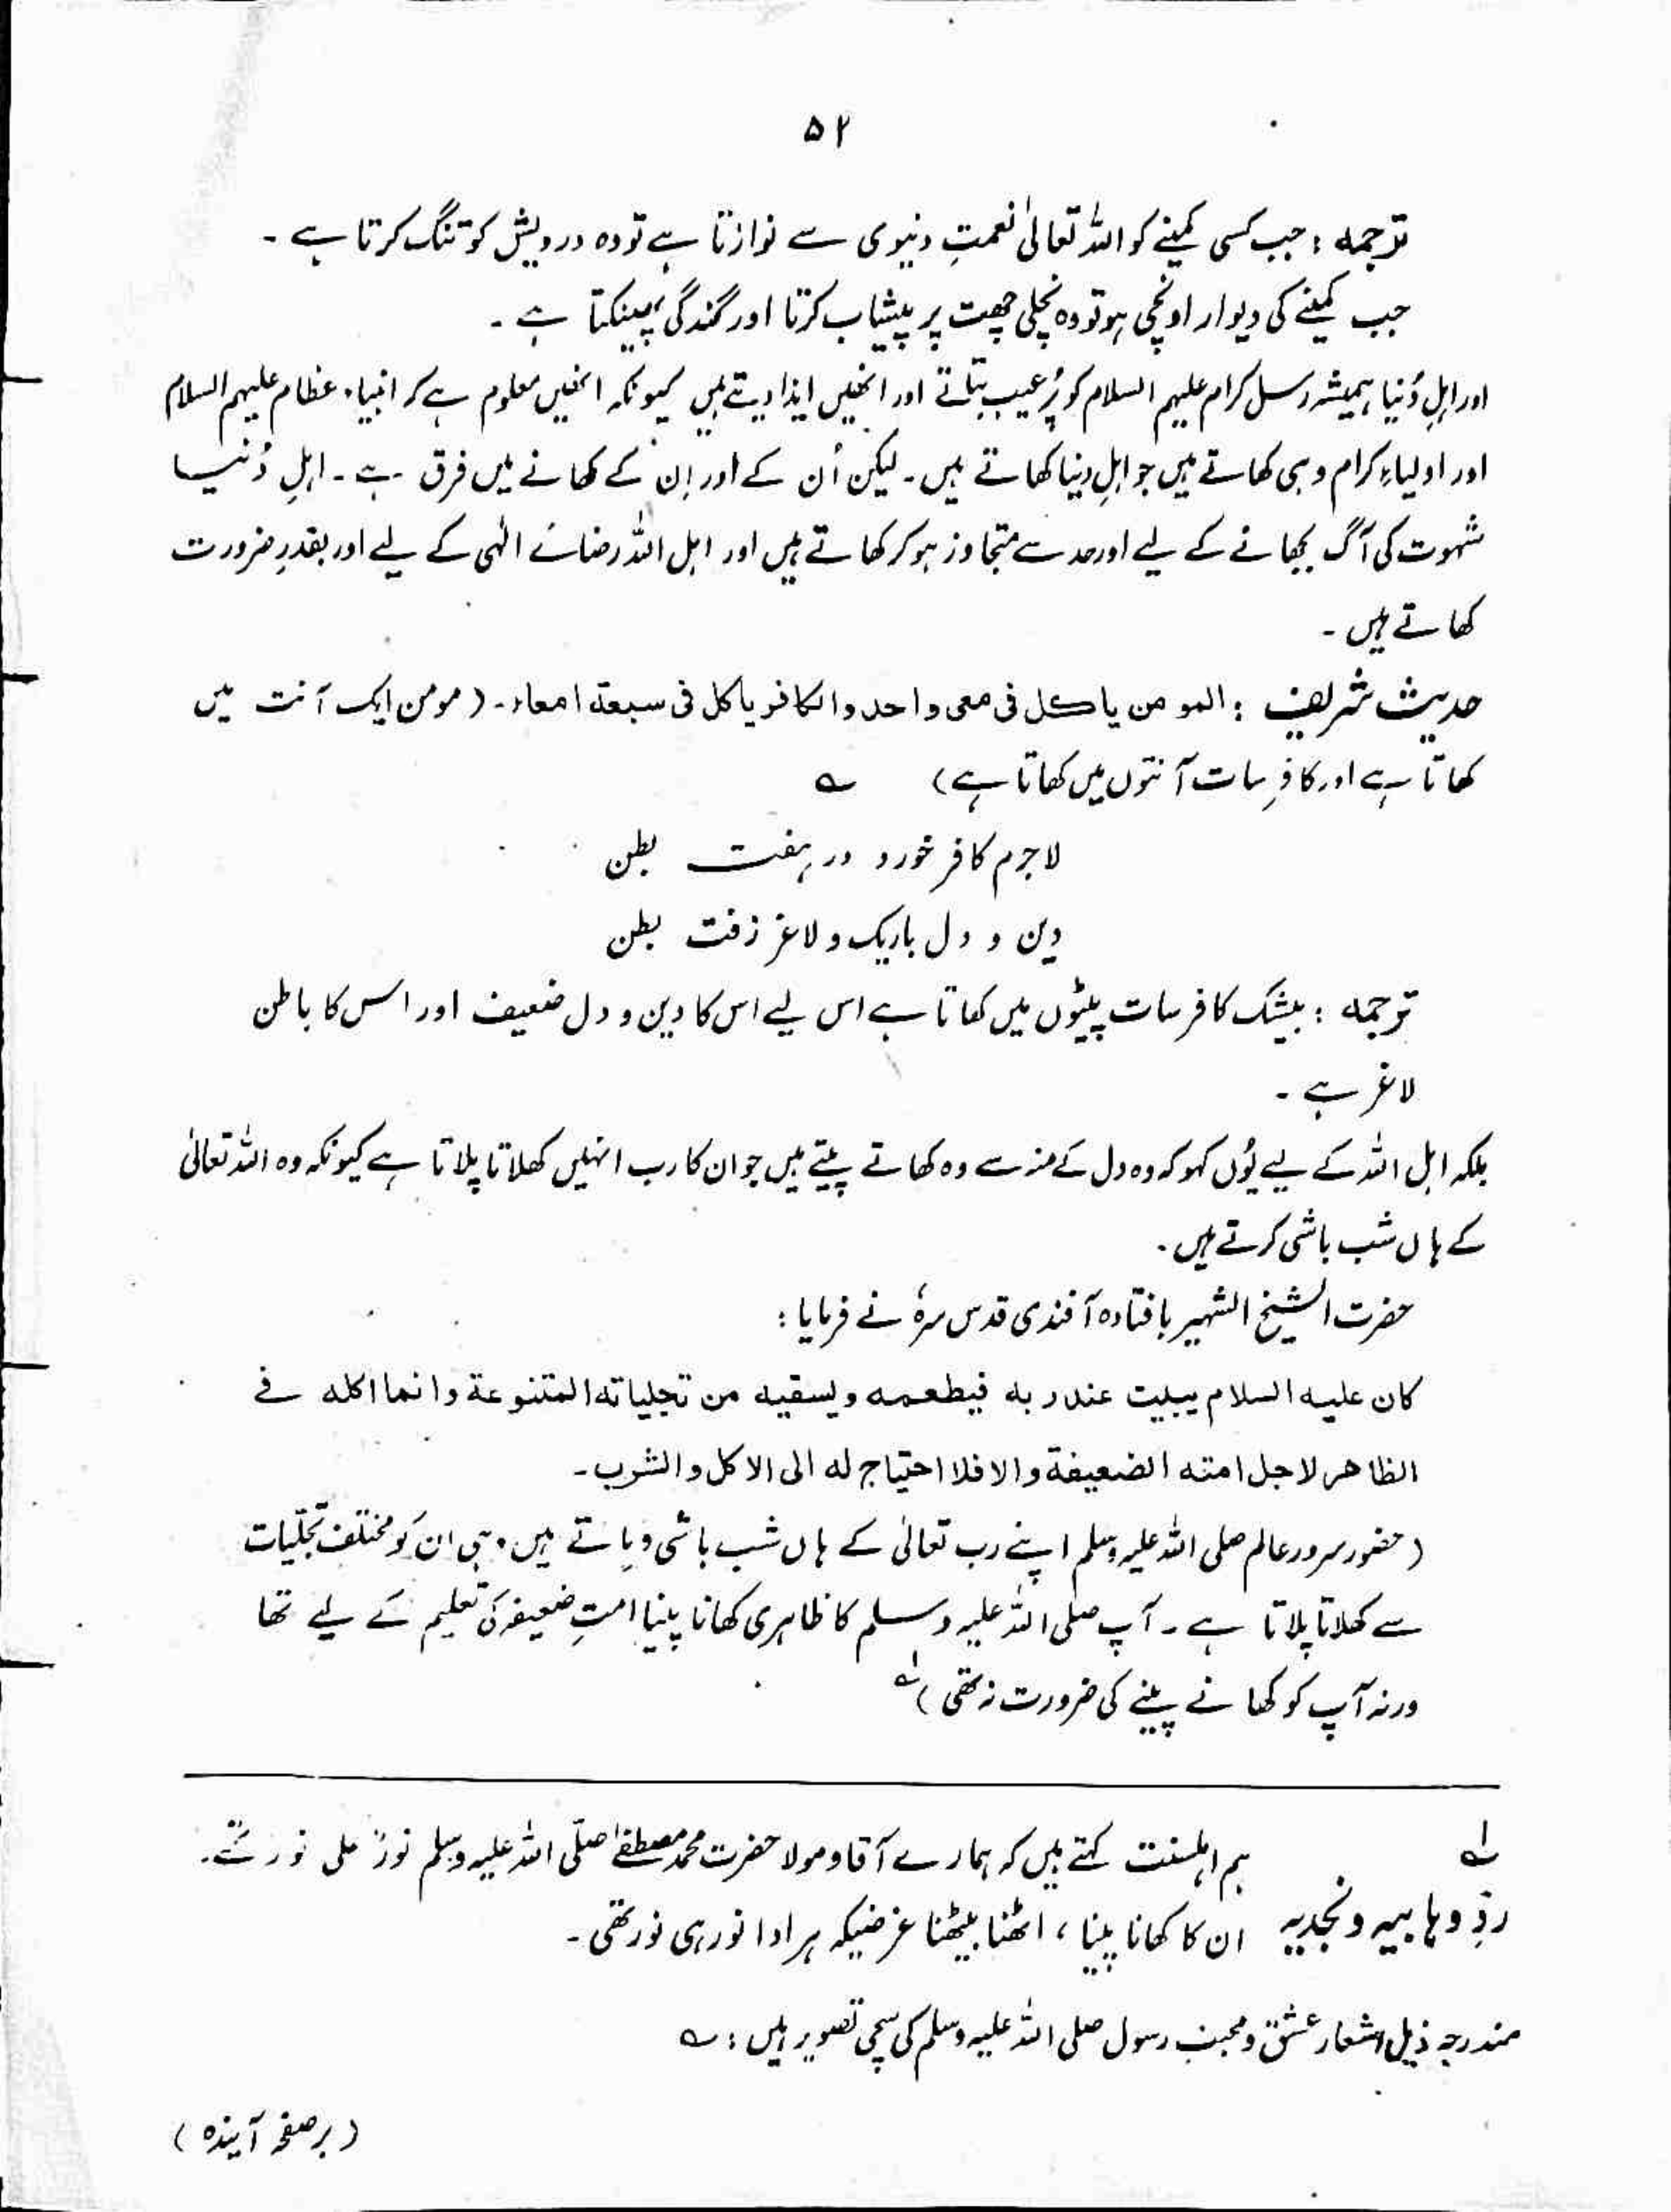 ۵۲
ترجمہ : جب کسی کمینے کو اللہ تعالیٰ نعمتِ دنیوی سے نوازتا ہے تو وہ درویش کو تنگ کرتا ہے ۔
جب کمینے کی دیوار اونچی ہو تو وہ نچلی چھت پر پیشاب کرتا اور گندگی پھینکتا ہے ۔
اور اہلِ دُنیا ہمیشہ رسل کرام علیہم السلام کو پُر عیب بتاتے اور انھیں ایذا دیتے ہیں کیونکہ انھیں معلوم ہے کہ انبیاء عظام علیہم السلام
اور اولیاءِ کرام وہی کھاتے ہیں جو اہلِ دنیا کھاتے ہیں ۔ لیکن اُن کے اور اِن کے کھانے میں فرق ہے ۔ اہلِ دُنیا
شہوت کی آگ بجھانے کے لیے اور حد سے متجاوز ہو کر کھاتے ہیں اور اہل اللہ رضائے الٰہی کے لیے اور بقدرِ ضرورت
کھاتے ہیں ۔
حدیث شریف : المومن یاکل فی معی واحد والکافر یاکل فی سبعة امعاء ۔ ( مومن ایک آنت میں
کھاتا ہے اور کافر سات آنتوں میں کھاتا ہے ) ؎
لاجرم کافر خورد در ہفت بطن
دین و دل باریک و لاغر زفت بطن
ترجمہ : بیشک کافر سات پیٹوں میں کھاتا ہے اس لیے اس کا دین و دل ضعیف اور اس کا باطن
لاغر ہے ۔
بلکہ اہل اللہ کے لیے یُوں کہو کہ وہ دل کے منہ سے وہ کھاتے پیتے ہیں جو ان کا رب انہیں کھلاتا پلاتا ہے کیونکہ وہ اللہ تعالیٰ
کے ہاں شب باشی کرتے ہیں ۔
حضرت الشیخ الشہیر بافتادہ آفندی قدس سرہٗ نے فرمایا :
کان علیہ السلام یبیت عند ربہ فیطعمہ ویسقیہ من تجلیاتہ المتنوعة وانما اکلہ فے
الظاھر لاجل امتہ الضعیفة والا فلا احتیاج لہ الی الاکل والشرب ۔
( حضور سرور عالم صلی اللہ علیہ وسلم اپنے رب تعالیٰ کے ہاں شب باشی فرماتے ہیں وہی ان کو مختلف تجلّیات
سے کھلاتا پلاتا ہے ۔ آپ صلی اللہ علیہ وسلم کا ظاہری کھانا پینا امتِ ضعیفہ کی تعلیم کے لیے تھا
ورنہ آپ کو کھانے پینے کی ضرورت نہ تھی ) لہ
لہ
ردِّ وہابیہ و نجدیہ
ہم اہلسنت کہتے ہیں کہ ہمارے آقا و مولا حضرت محمد مصطفےٰ صلی اللہ علیہ وسلم نورٌ علی نور تھے ۔
ان کا کھانا پینا ، اٹھنا بیٹھنا غرضیکہ ہر ادا نور ہی نور تھی ۔
مندرجہ ذیل اشعار عشق و محبتِ رسول صلی اللہ علیہ وسلم کی سچی تصویر ہیں : ؎
( برصفحہ آیندہ )